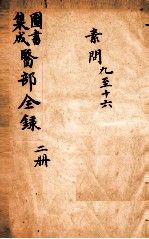 素問九至十六
圖書集成醫部全録
二册